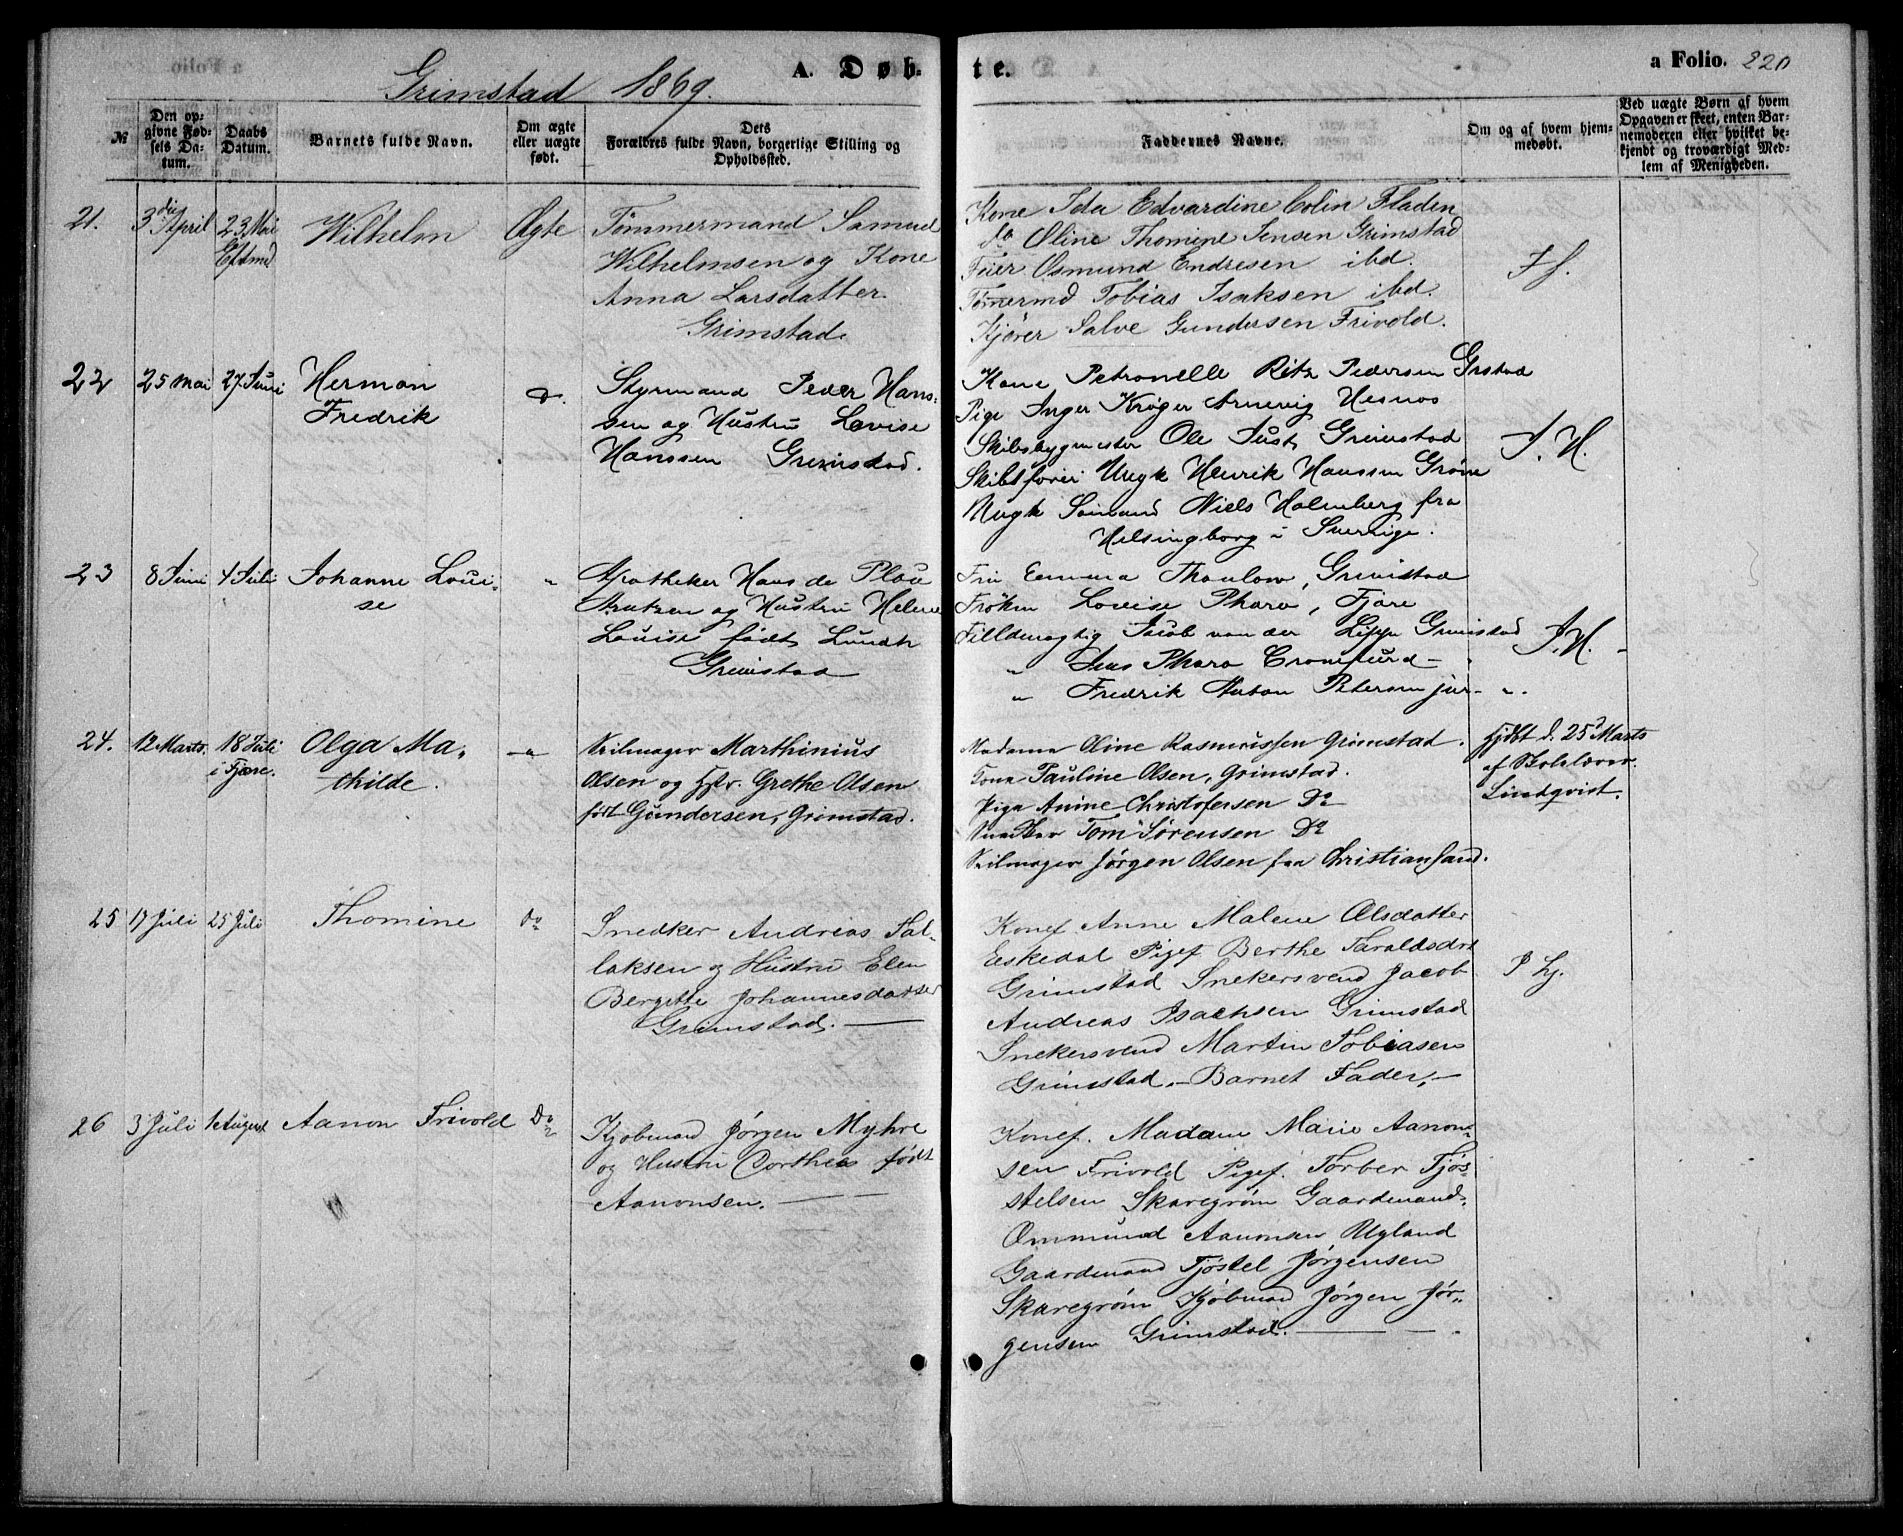 Grimstad 1869. A. Døb-
te. a Folio. 220
№
Den op-
givne Fød-
sels Da-
tum.
Daabs
Datum.
Barnets fulde Navn.
Om ægte
eller uægte
født.
Dets
Forældres fulde Navn, borgerlige Stilling og
Opholdssted.
Faddernes Navne.
Om og af hvem hjem-
medøbt.
Ved uægte Børn af hvem
Opgaven er skeet, enten Bar-
nemoderen eller hvilket be-
kjendt og troværdigt Med-
lem af Menigheden.
21. 3die April 23 Mai Wilhelm Ægte Tömmermand Samuel
Eftmd
Wilhelmsen og Kone
Anna Larsdatter.
Grimstad
Kone Ida Edvardine Colin Fladen
do Oline Thomine Jensen Grimstad
Osmund Endresen ibd.
Tömermd Tobias Isaksen ibd.
Kjører Salve Gundersen Frivold.
22 25 Mai 27 Juni Herman
Fredrik
Styrmand Peder Hans-
sen og Hustru Lovise
Hanssen Grimstad.
Kone Petronelle Ritz Pedersen Grstad
Pige Inger Krøger Arnevig Hesnæs
Skibsbygmester Ole Just Grimstad
Skibsfører Ungk Henrik Hanssen
Ungk Sömand Niels Holmberg fra
Helsingborg i Sverrige.
J. H.
23 8 Juni 4 Juli Johanne Loui-
se
"
Apotheker Hans de
og Hustru Helene
Louise født Lundh
Grimstad
Fru Emma Thaulow, Grimstad
Frøken Lovise Pharo, Fjære
Fuldmægtig Jacob von der Lippe Grimstad
" Jens Pharo
" Fredrik Anton Petersen jur- ".
J. H.
24. 12 Marts. 18 Juli Olga Ma-
i Fjære.
thilde.
Seilmager Marthinius
Olsen og Hstr. Grethe Olsen
født Gundersen, Grimstad.
Madame Oline Rasmussen Grimstad.
Kone Pauline Olsen, Grimstad.
Pige Anine Christofersen Do
Snedker Tom Sørensen Do
Seilmager Jørgen Olsen fra Christiansand.
Hjdbt d. 25d Marts
af Skolelærer
Lindqvist.
25 17 Juli 25 Juli Thomine do
Snedker Andreas Tal-
laksen og Hustru Elen
Bergitte Johannesdatter
Grimstad.
Konef. Anne Malene Olsdatter
Eskedal Pigef Berthe Taraldsdat
Grimstad Snekersvend Jacob
Andreas Isachsen Grimstad
Snekersvend Martin Tobiasen
Grimstad. - Barnet Fader. -
26 3 Juli 1 August Aanon Frivold Do
Kjøbmand Jørgen Myhre
og Hustru Dorthea født
Aanonsen.
Konef. Madam Marie Aanon-
sen Frivold Pigef. Torber Tjøs-
stelsen Skaregrøm Gaardmand
Ommund Aanonsen Ugland
Gaardmand Tjøstel Jørgensen
Skaregrøm Kjøbmand Jørgen Jør-
gensen Grimstad.